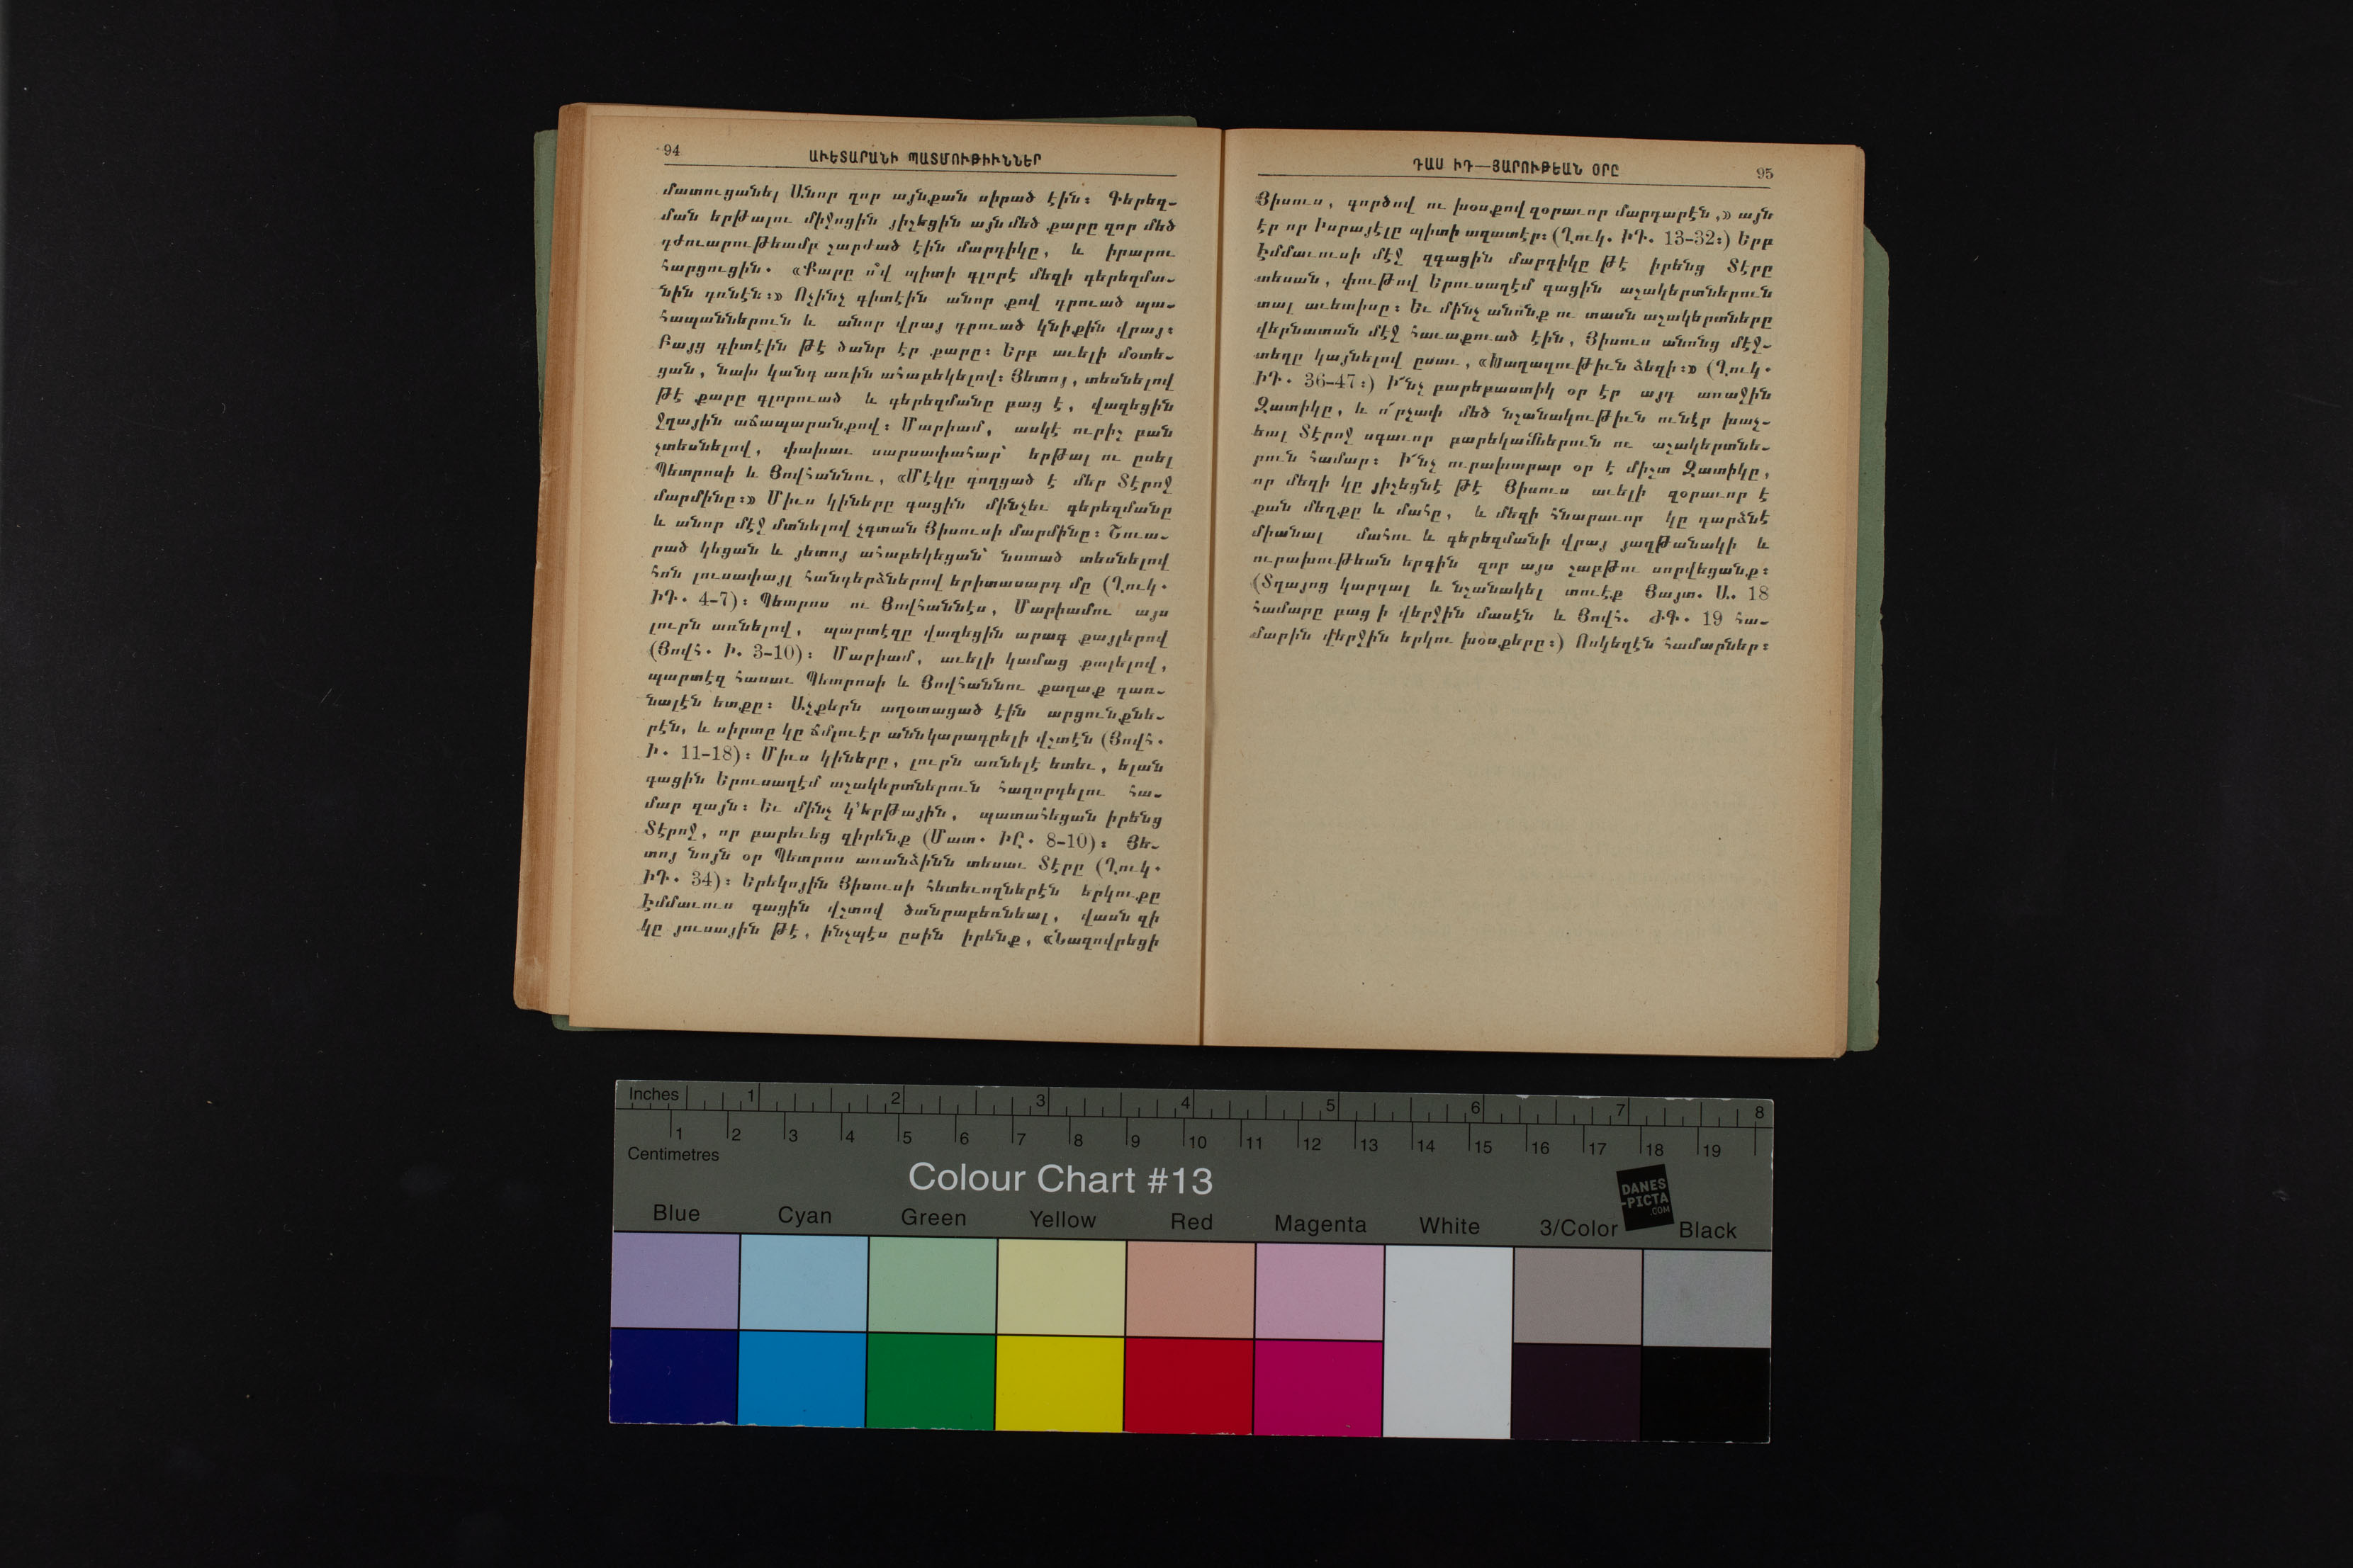 94
ԱՒԵՏԱՐԱՆԻ ՊԱՏՄՈՒԹԻՒՆՆԵՐ
մատուցանել Անոր զոր այնքան սիրած էին։ Գերեզ-
ման երթալու միջոցին յիշեցին այն մեծ քարը զոր մեծ
դժուարութեամբ շարժած էին մարդիկը, և իրարու
հարցուցին. «Քարը ո՞վ պիտի գլորէ մեզի գերեզմա-
նին դռնէն։» Ոչինչ գիտէին անոր քով դրուած պա-
հապաններուն և անոր վրայ դրուած կնիքին վրայ։
Բայց գիտէին թէ ծանր էր քարը։ Երբ աւելի մօտե-
ցան, նախ կանգ առին ահաբեկելով։ Յետոյ, տեսնելով
թէ քարը գլորուած և գերեզմանը բաց է, վազեցին
ջղային աճապարանքով։ Մարիամ, ասկէ ուրիշ բան
չտեսնելով, փախաւ սարսափահար՝ երթալ ու ըսել
Պետրոսի և Յովհաննու, «Մէկը գողցած է մեր Տէրոջ
մարմինը։» Միւս կիները գացին մինչեւ գերեզմանը
և անոր մէջ մտնելով չգտան Յիսուսի մարմինը։ Շուա-
րած կեցան և յետոյ ահաբեկեցան՝ նստած տեսնելով
հոն լուսափայլ հանդերձներով երիտասարդ մը (Ղուկ.
ԻԴ. 4-7)։ Պետրոս ու Յովհաննէս, Մարիամու այս
լուրն առնելով, պարտէզը վազեցին արագ քայլերով
(Յովհ. Ի. 3-10)։ Մարիամ, աւելի կամաց քալելով,
պարտէզ հասաւ Պետրոսի և Յովհաննու քաղաք դառ-
նալէն ետքը։ Աչքերն աղօտացած էին արցունքնե-
րէն, և սիրտը կը ճմլուէր աննկարագրելի վշտէն (Յովհ.
Ի. 11-18)։ Միւս կիները, լուրն առնելէ ետեւ, ելան
գացին Երուսաղէմ աշակերտներուն հաղորդելու հա-
մար զայն։ Եւ մինչ կ՚երթային, պատահեցան իրենց
Տէրոջ, որ բարեւեց զիրենք (Մատ. ԻԸ. 8-10)։ Յե-
տոյ նոյն օր Պետրոս առանձինն տեսաւ Տէրը (Ղուկ.
ԻԴ. 34)։ Երեկոյին Յիսուսի հետեւողներէն երկուքը
Էմմաուս գացին վշտով ծանրաբեռնեալ, վասն զի
կը յուսային թէ, ինչպէս ըսին իրենք, «Նազովրեցի
ԴԱՍ ԻԴ—ՅԱՐՈՒԹԵԱՆ ՕՐԸ
95
Յիսուս, գործով ու խօսքով զօրաւոր մարդարէն,» այն
էր որ Իսրայէլը պիտի ազատէր։ (Ղուկ. ԻԴ. 13-32։) Երբ
Էմմաուսի մէջ զգացին մարդիկը թէ իրենց Տէրը
տեսան, փութով Երուսաղէմ գացին աշակերտներուն
տալ աւետիսը։ Եւ մինչ անոնք ու տասն աշակերտները
վերնատան մէջ հաւաքուած էին, Յիսուս անոնց մէջ-
տեղը կայնելով ըսաւ, «Խաղաղութիւն ձեզի։» (Ղուկ.
ԻԴ. 36-47։) Ի՜նչ բարեբաստիկ օր էր այդ առաջին
Զատիկը, և ո՜րչափ մեծ նշանակութիւն ունէր խաչ-
եալ Տէրոջ սգաւոր բարեկամներուն ու աշակերտնե-
րուն համար։ Ի՜նչ ուրախարար օր է միշտ Զատիկը,
որ մեզի կը յիշեցնէ թէ Յիսուս աւելի զօրաւոր է
քան մեղքը և մահը, և մեզի հնարաւոր կը դարձնէ
միանալ մահու և գերեզմանի վրայ յաղթանակի և
ուրախութեան երգին զոր այս շաբթու սորվեցանք։
(Տղայոց կարդալ և նշանակել տուէք Յայտ. Ա. 18
համարը բաց ի վերջին մասէն և Յովհ. ԺԳ. 19 հա-
մարին վերջին երկու խօսքերը։) Ոսկեղէն համարներ։
Inches 1 2 3 4 5 6 7 8
1 2 3 4 5 6 7 8 9 10 11 12 13 14 15 16 17 18 19
Centimetres
Colour Chart #13
DANES
-PICTA
.COM
Blue Cyan Green Yellow Red Magenta White 3/Color Black